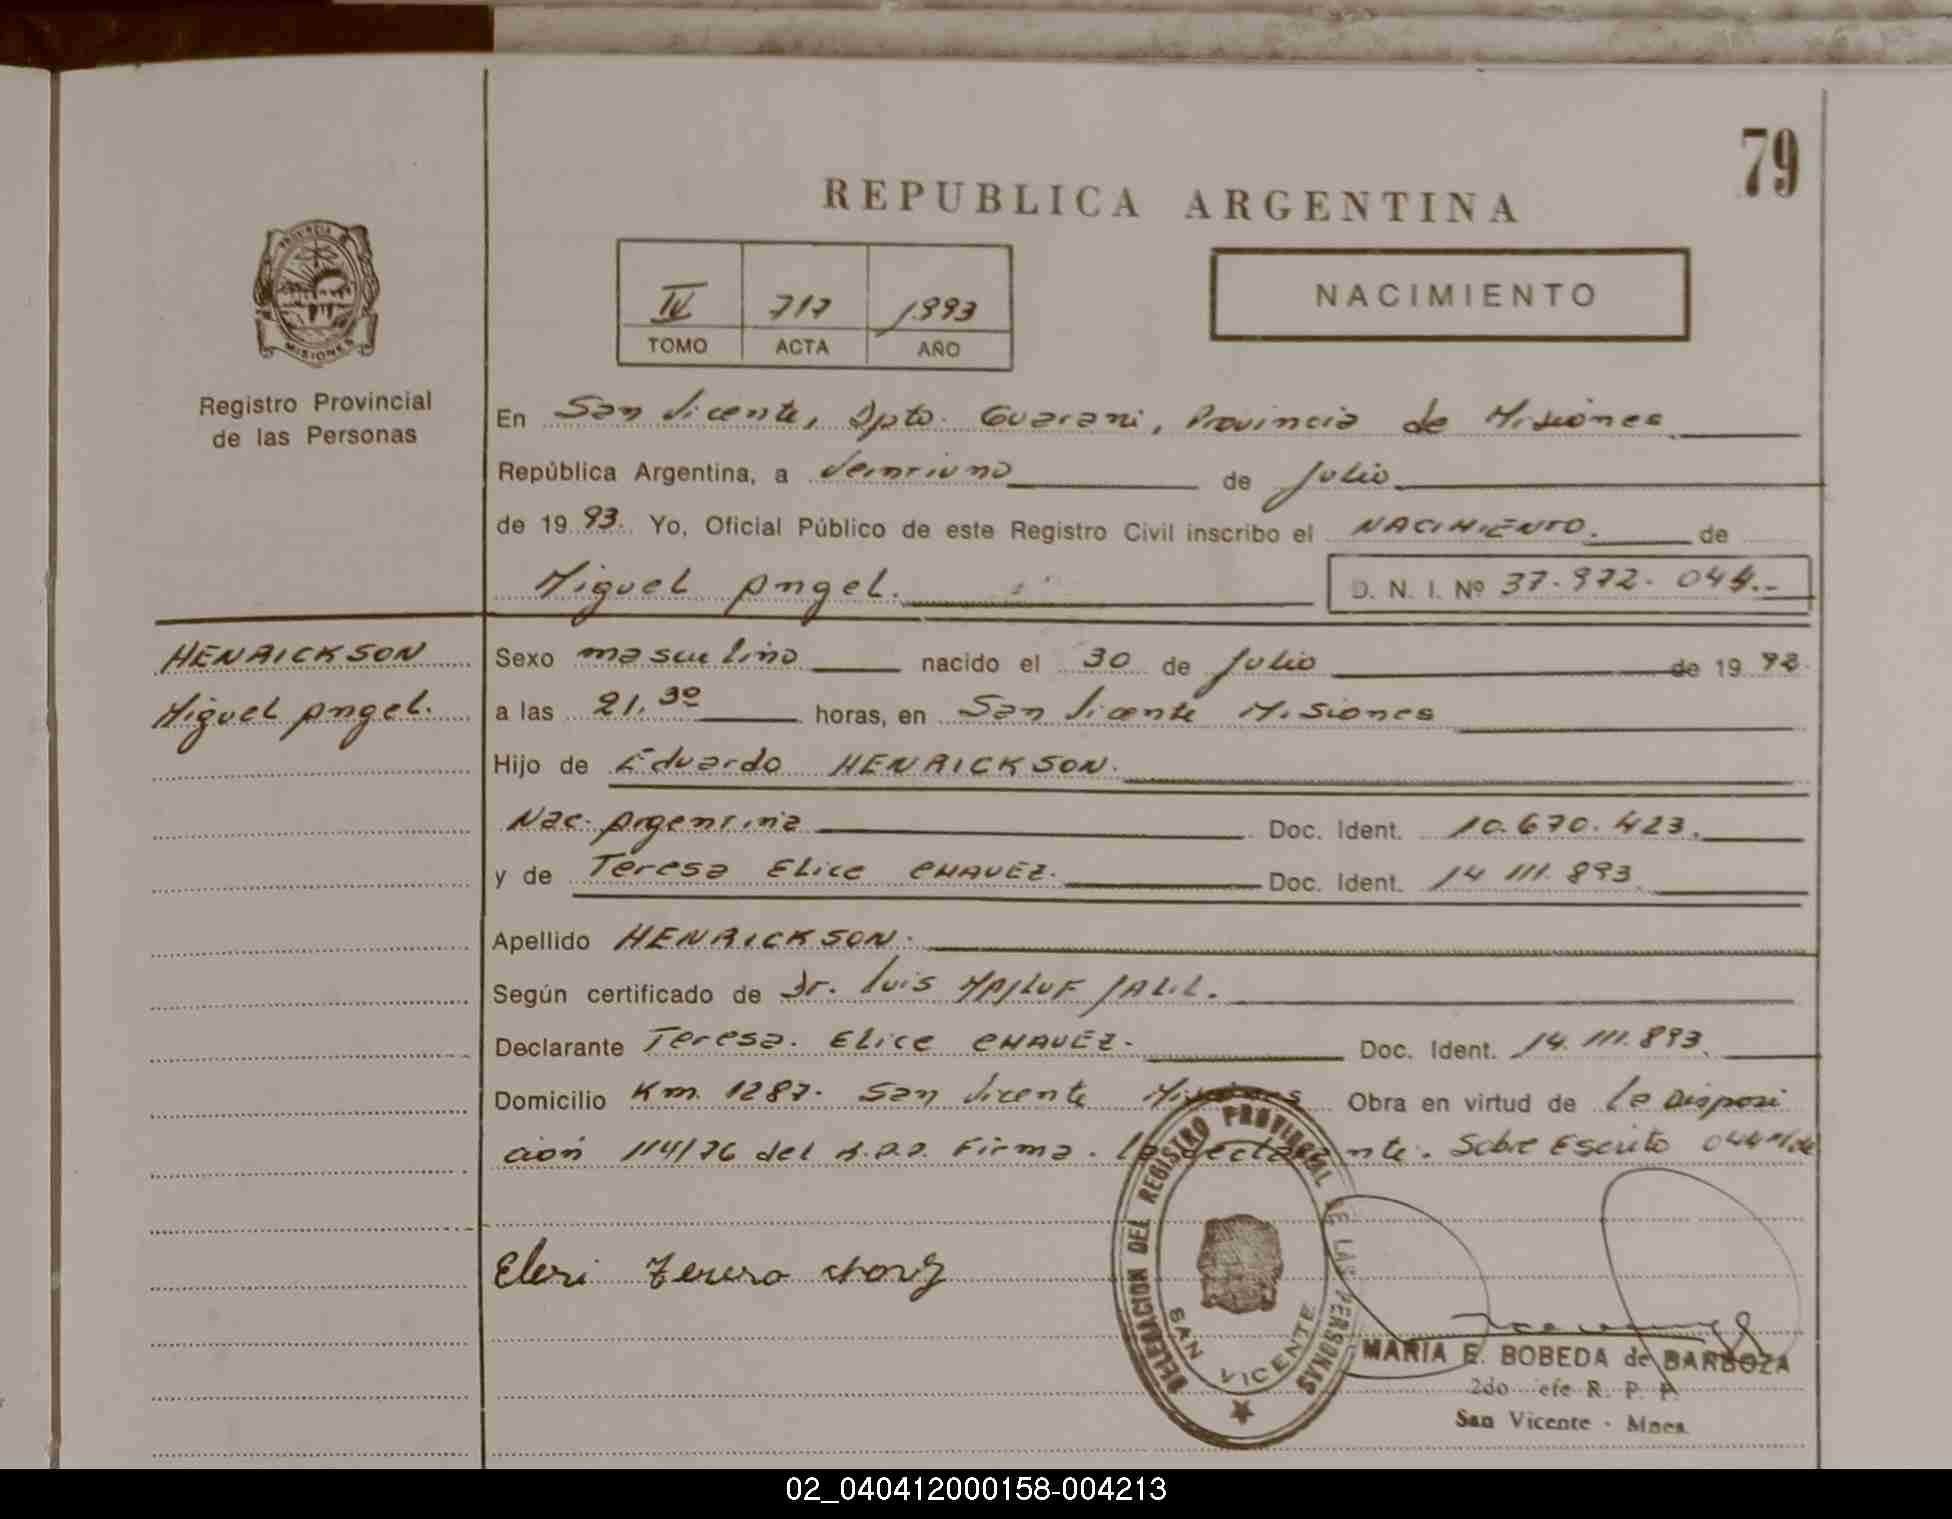 79
REPUBLICA ARGENTINA
PROVINCIA DE
MISIONES
Registro Provincial
de las Personas
IV 717 1993
TOMO ACTA AÑO
NACIMIENTO
En San Vicente, Dpto. Guarani, Provincia de Misiones
República Argentina, a veintiuno de Julio
de 1993. Yo, Oficial Público de este Registro Civil inscribo el NACIMIENTO. de
Miguel Angel. D. N. I. Nº 37.972.044.-
HENRICKSON
Miguel Angel.
Sexo masculino nacido el 30 de Julio de 1992.
a las 21.30 horas, en San Vicente Misiones
Hijo de Eduardo HENRICKSON.
Nac. Argentina Doc. Ident. 10.670.423.
y de Teresa Elice CHAVEZ. Doc. Ident. 14 111.893
Apellido HENRICKSON.
Según certificado de Dr. Luis MAJLUF JALIL.
Declarante Teresa. Elice CHAVEZ. Doc. Ident. 14.111.893.
Domicilio Km. 1287. San Vicente Misiones Obra en virtud de La Disposi
ción 114/76 del R.P.P. Firma. La declarante. Sobre Escrito 044
DELEGACION DEL REGISTRO PROVINCIAL DE LAS PERSONAS
SAN VICENTE
MARIA E. BOBEDA de BARBOZA
2do Jefe R. P. P.
San Vicente - Mnes.
02_040412000158-004213